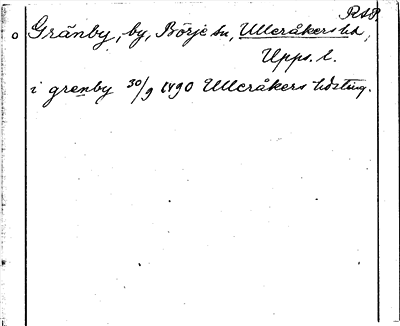 RAP
Gränby, by, Börje sn, Ulleråkers hd,
Upps. l.
i grenby 30/9 1490 Ulleråkers häting.